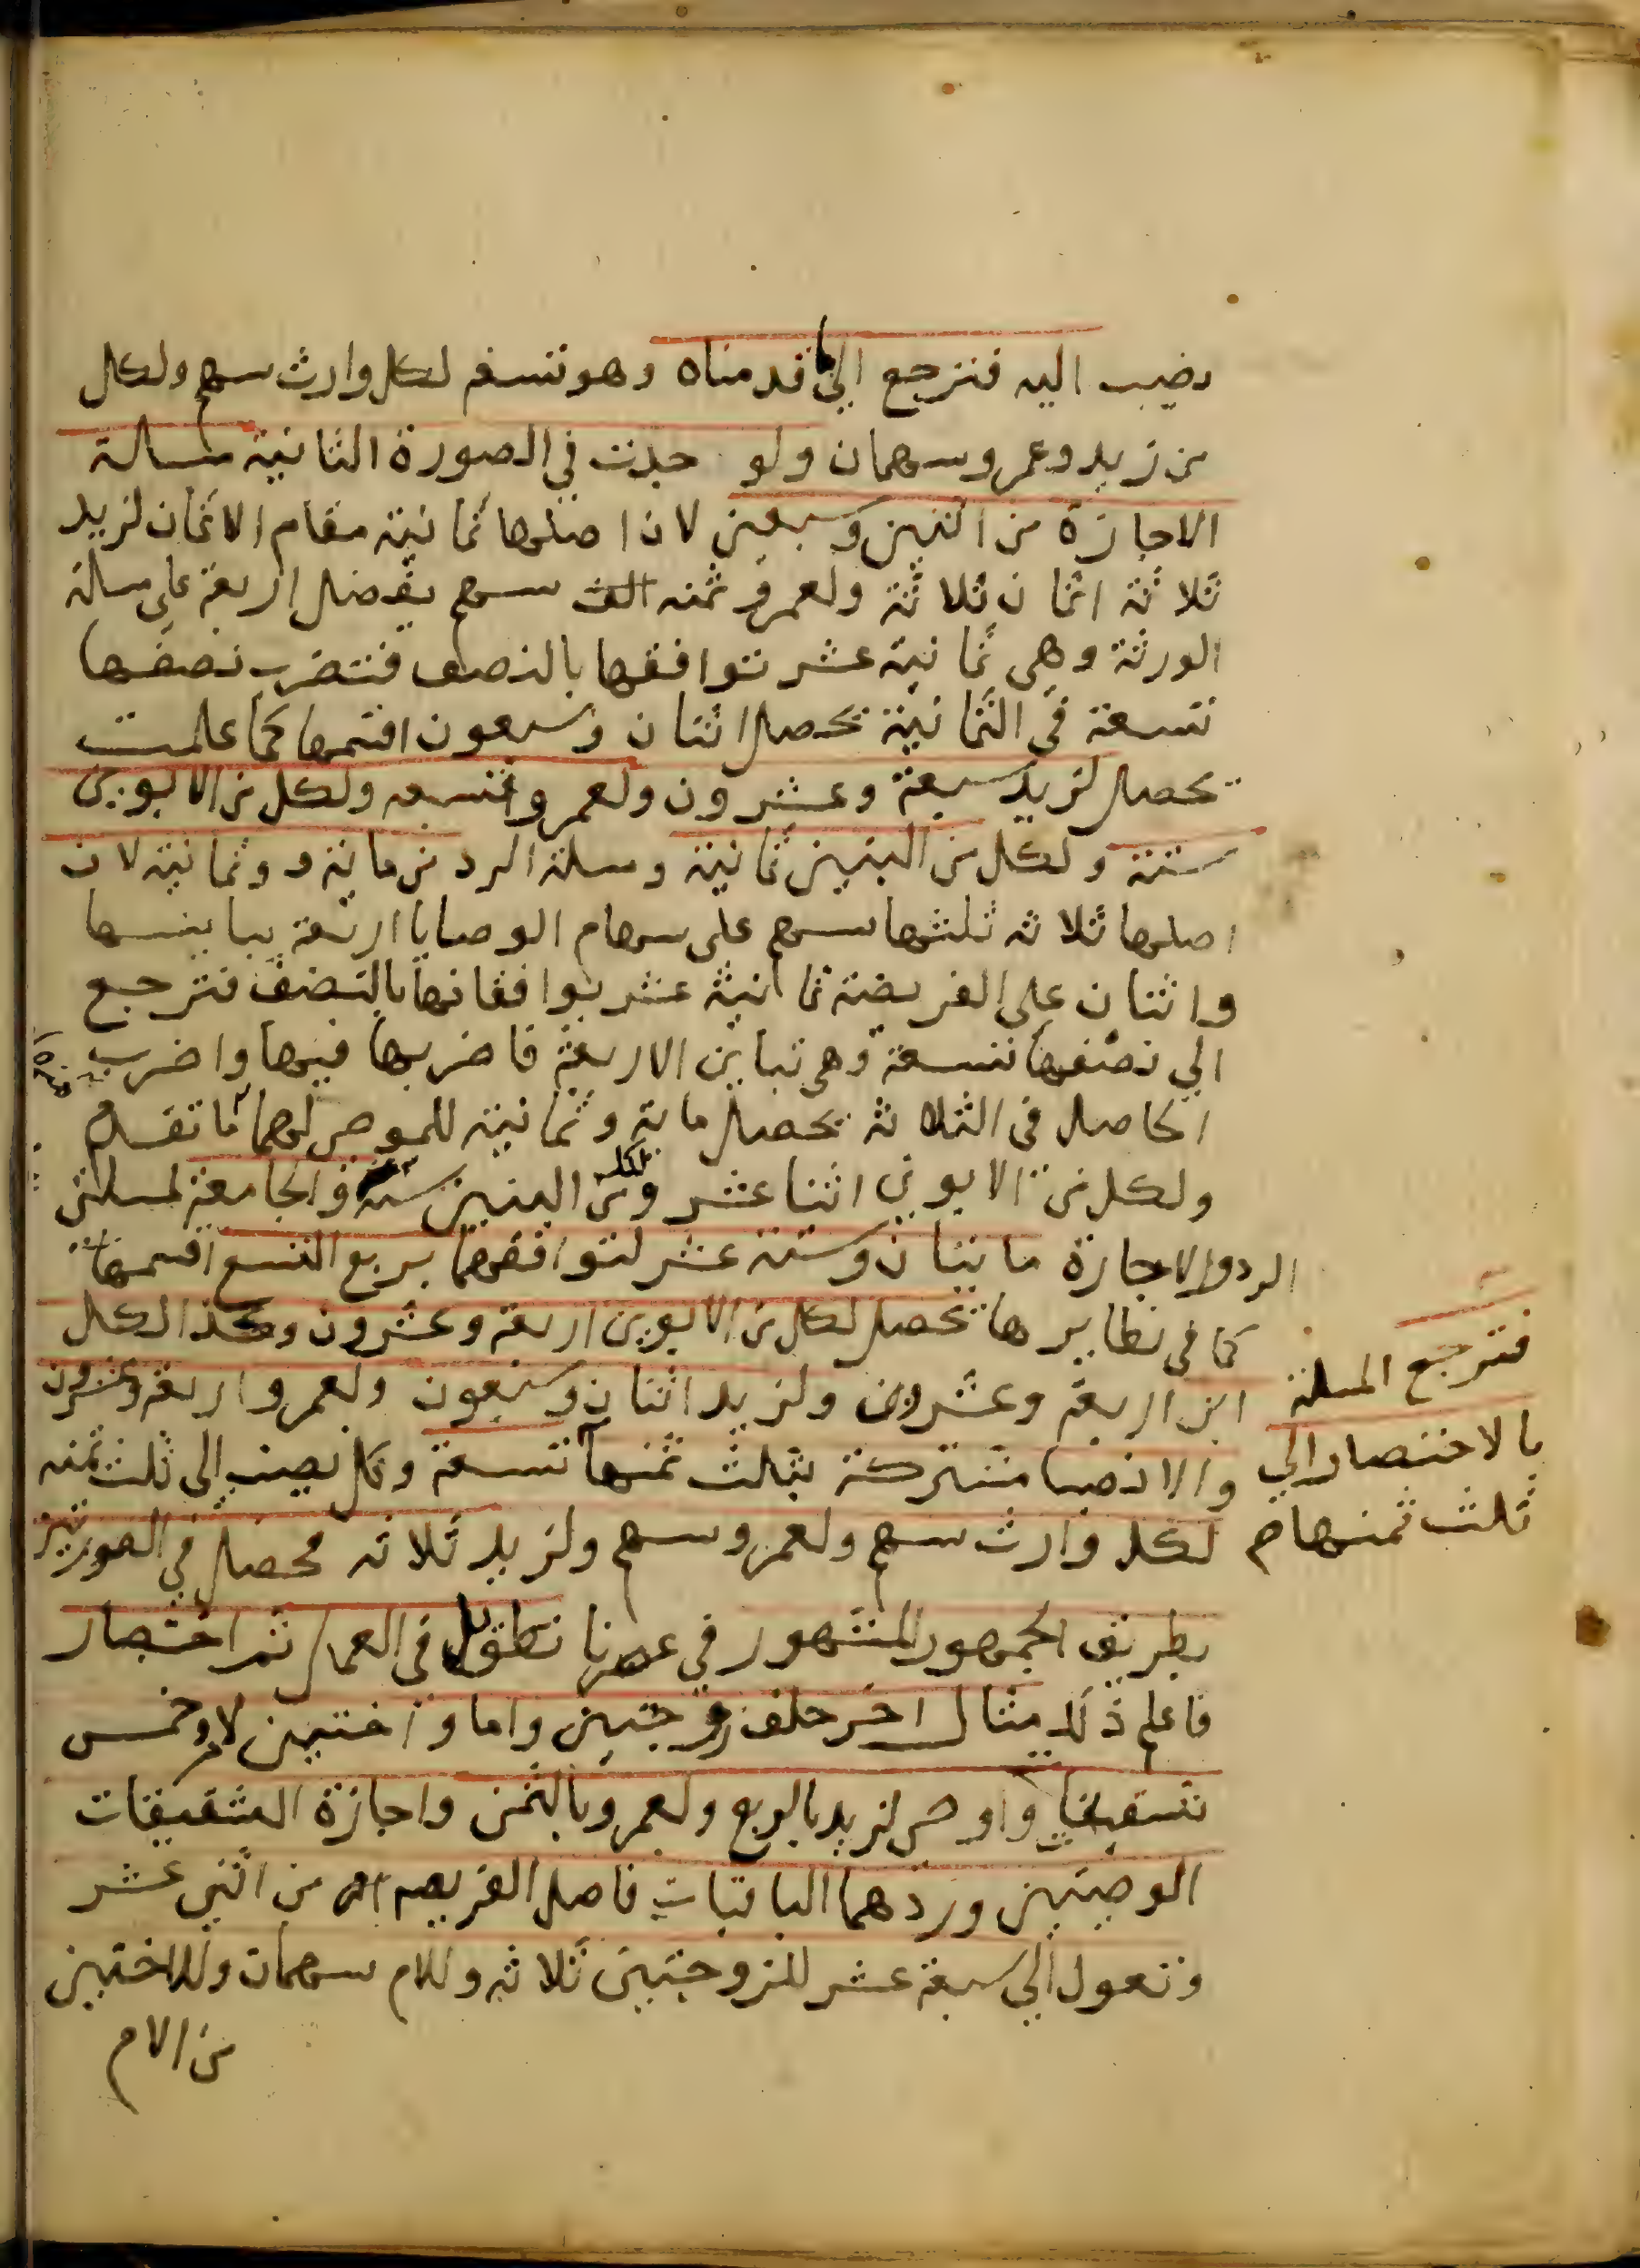 نصيب اليه فترجع الي ما قدمناه وهو تسعة لكل وارث سهم ولكل
من زيد وعمرو سهمان ولو حدثت في الصورة الثانية مسالة
الاجازة من اثنين وسبعين لان اصلها ثمانية مقام الاثمان لزيد
ثلاثة اثمان ثلاثة ولعمرو ثمنه سهم يفضل اربعة على مسلة
الورثة وهي ثمانية عشر توافقها بالنصف فتضرب نصفها
تسعة في الثمانية تحصل اثنان وسبعون اقسمها كما علمت
تحصل لزيد سبعة وعشرون ولعمرو تسعه ولكل من الابوين
ستة ولكل من البنين ثمانية ومسلة الرد من ماية وثمانية لان
اصلها ثلاثة ثلثها سهم على سهام الوصايا اربعة يباينها
واثنان على الفريضة ثمانية عشر يوافقانها بالنصف فترجع
الي نصفها تسعة وهي تباين الاربعة فاضربها فيها واضرب
الحاصل في الثلاثة تحصل ماية وثمانية للموصى لهما ما تقدم
ولكل من الابوين اثنا عشر ولكل من البنين ستة عشر والجامعة لمسلتي
الرد والاجازة مايتان وستة عشر لتوافقهما بربع التسع اقسمها
كما في نظايرها تحصل لكل من الابوين اربعة وعشرون وكذا لكل
ابن اربعة وعشرون ولزيد اثنان وسبعون ولعمرو اربعة وعشرون
والانصبا مشتركة بثلث ثمنها تسعة وكل نصيب الى ثلث ثمنه
فترجع المسلة
بالاختصار الي
ثلث ثمنها م
لكل وارث سهم ولعمرو سهم ولزيد ثلاثه محصل في الصورتين
بطريق الجمهور المشهور في عصرنا تطويل في العمل ثم اختصار
فاعلم ذلك مثال اخر خلف زوجتين واما واختين لام وخمس
شقيقات واوصى لزيد بالربع ولعمرو بالثمن واجازة الشقيقات
الوصيتين وردهما الباقيات فاصل الفريضه من اثني عشر
وتعول الي سبعة عشر للزوجتين ثلاثه وللام سهمان وللاختين
من الام